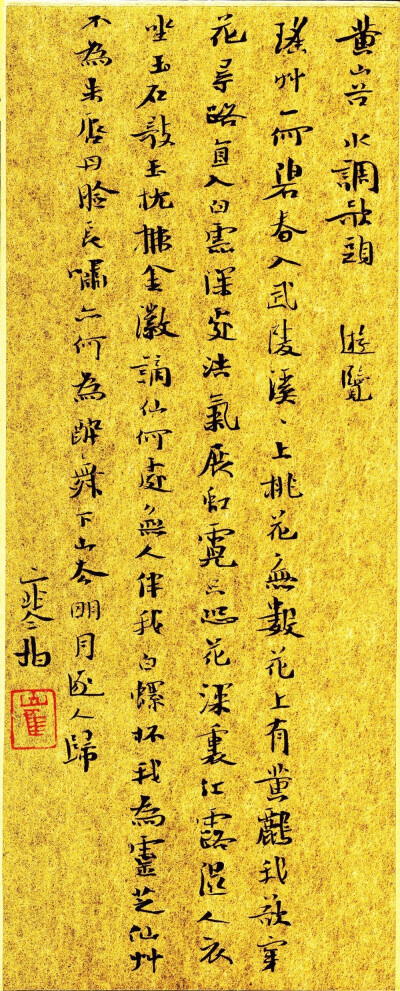 黄山谷 水調歌頭 遊覽
瑤艸一何碧春入武陵溪〻上桃花無數花上有黄鸝我欲穿
花尋路直入白雲深處浩氣展虹霓只恐花深裏红露溼人衣
坐玉石敧玉枕拂金徽謫仙何處無人伴我白螺杯我為靈芝仙艸
不為朱唇丹臉長嘯亦何為醉舞下山去明月逐人歸